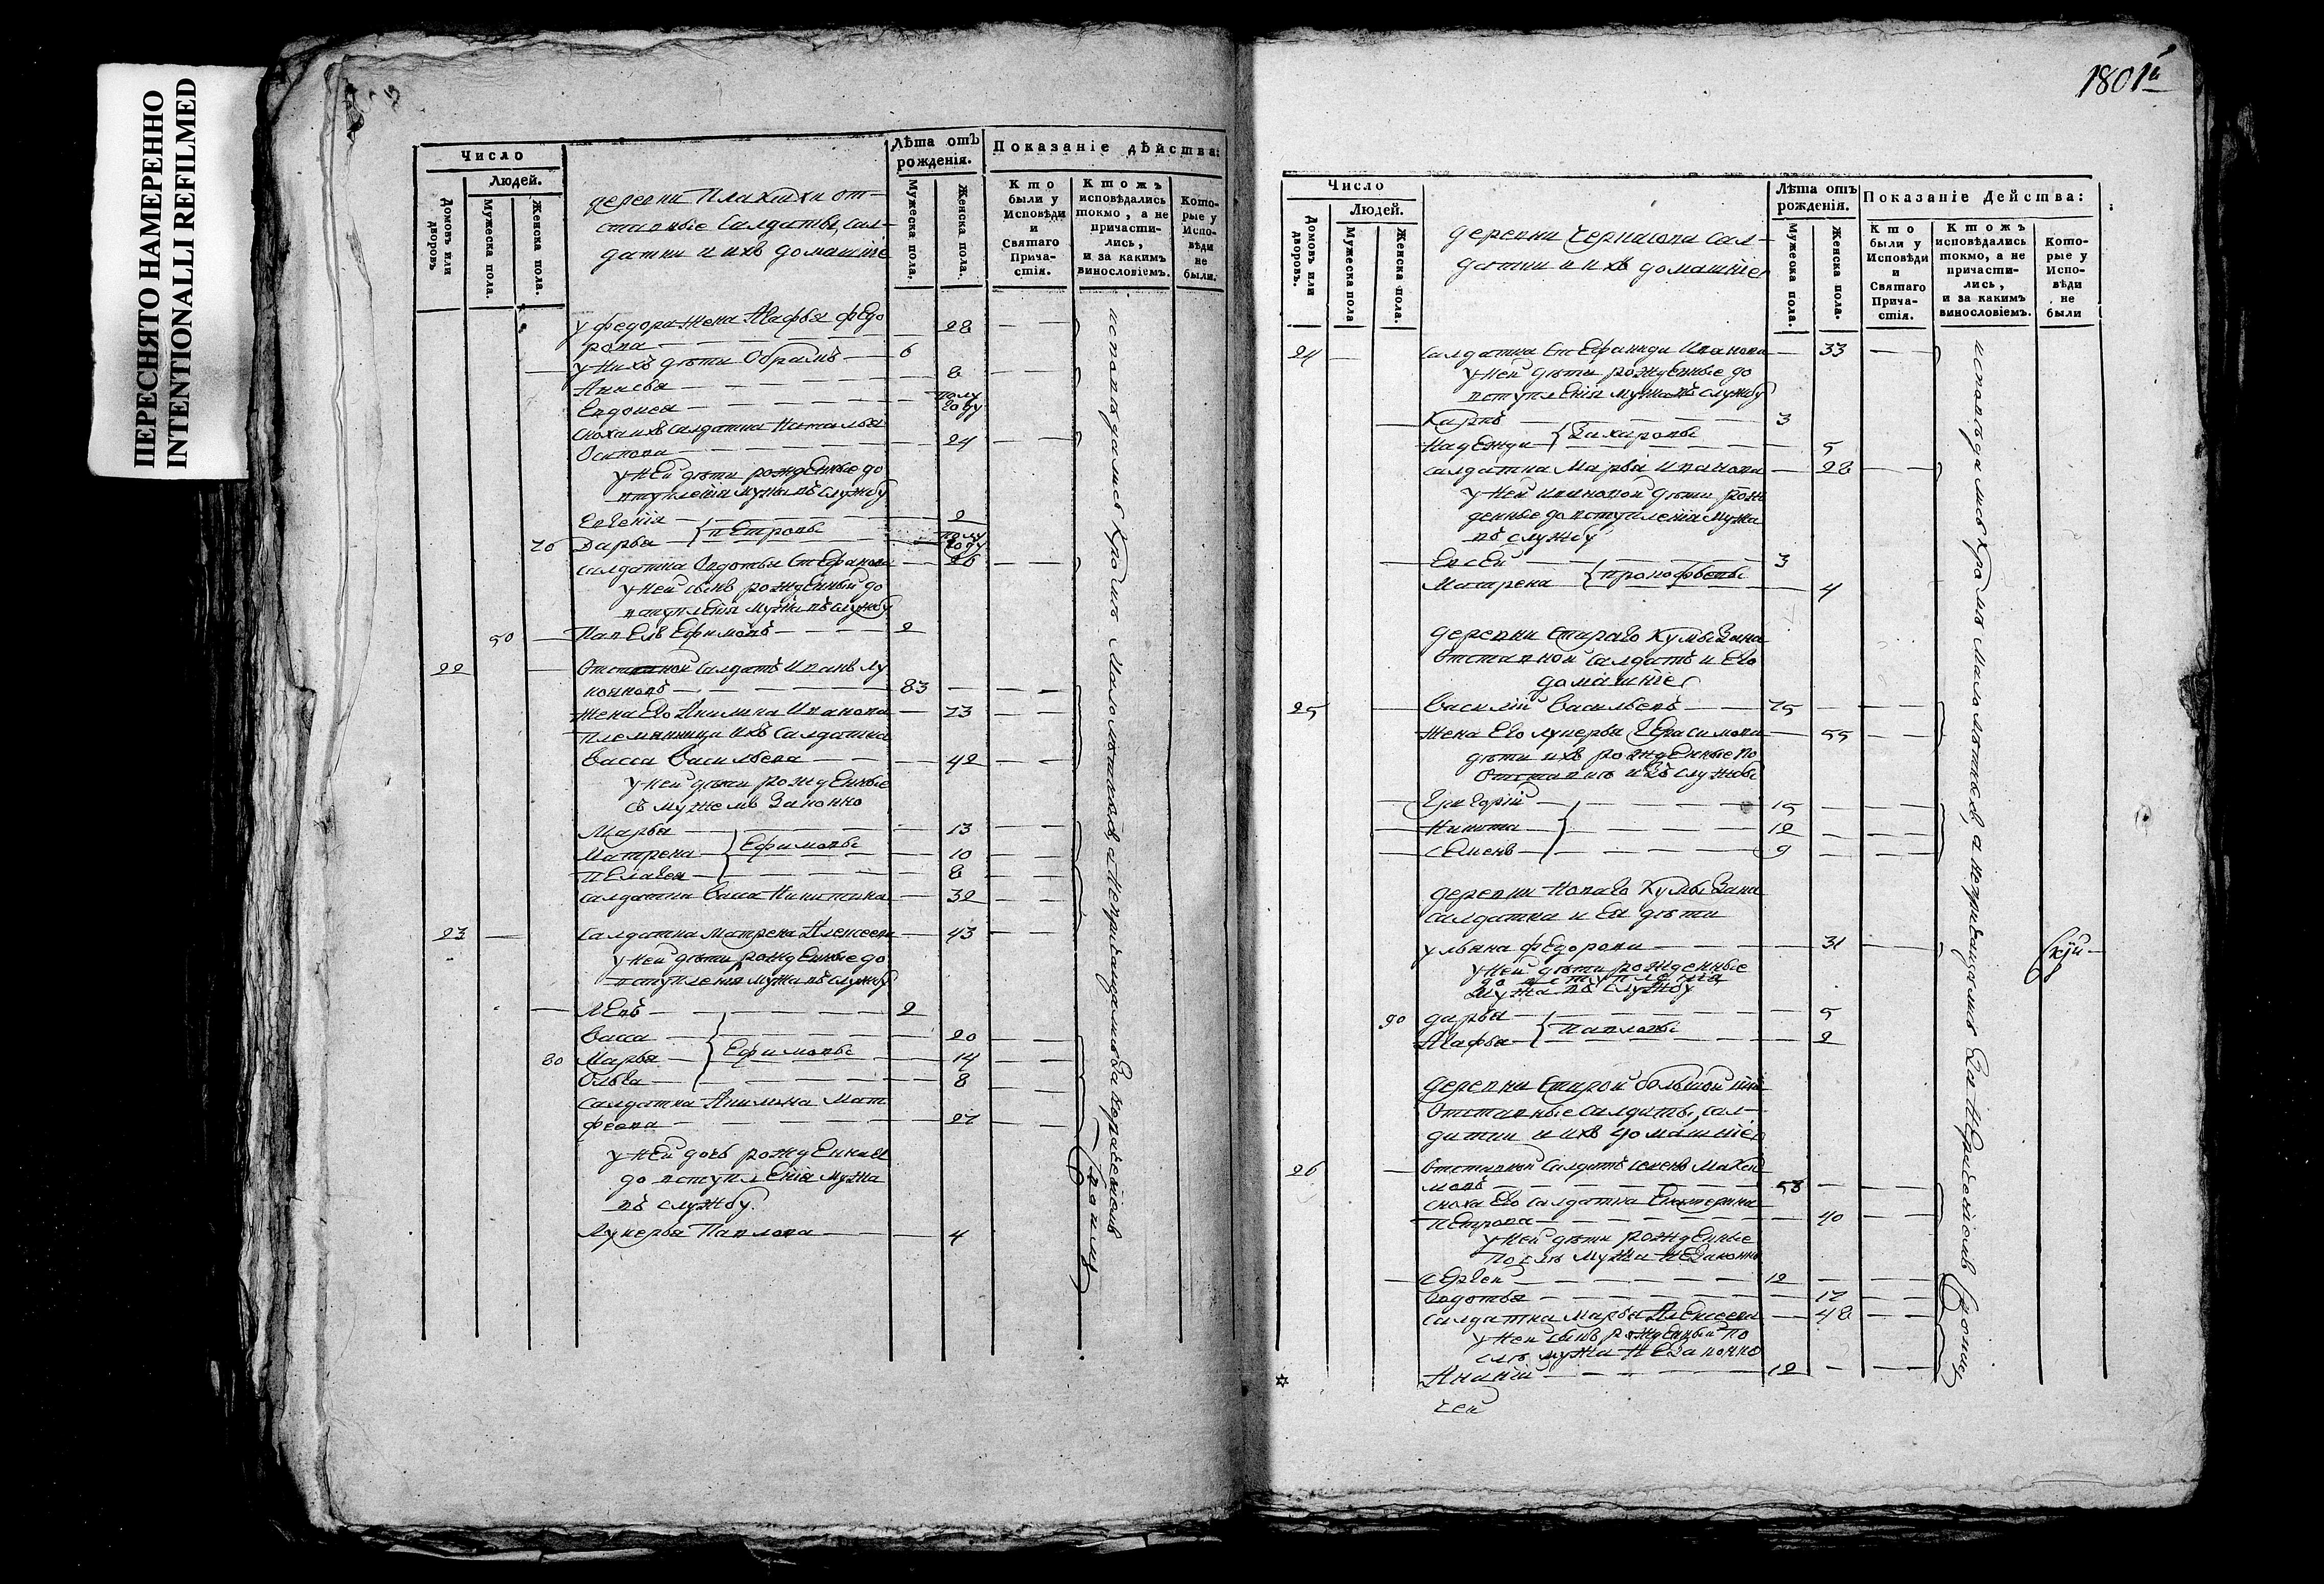 ПЕРЕСНЯТО НАМЕРЕННО
INTENTIONALLI REFILMED
Число
Людей.
Домовъ или дворовъ
Мужеска пола.
Женска пола.
деревни Плакидки от-
ставные Салдаты, сал-
датки и ихъ домашніе
Лѣта отъ рожденія.
Мужеска пола,
Женска пола.
Показаніе дѣйства:
Кто были у Исповѣди и Святаго Прича-стія.
Ктожъ исповѣдались токмо, а не причасти-лись, и за какимъ винословіемъ.
Кото-рые у Испо-вѣди не были.
у федора жена Агафья федо
рова 28
у нихъ дѣти Обрамъ 6
Анисья 8
Евдокея полу году
сноха ихъ салдатка Наталья
Осипова 24
у ней дѣти рожденные до
вступленія мужа въ службу
Евгенія 2
70 Дарья Петровы полу году
салдатка Авдотья Стефанова 26
у ней сынъ рожденный до
вступленія мужа въ службу
50 Павелъ Ефимовъ 2
22 Отставной салдатъ Иванъ Лу
кояновъ 83
жена его Акилина Иванова 73
Племянница ихъ Салдатка
Васса Васильева 42
у ней дѣти рожденные
съ мужемъ законно
Марья 13
Матрена Ефимовы 10
Пелагея 8
салдатка Васса Никитина 32
23 салдатка матрена Алексеева 43
у ней дѣти рожденные до
вступленія мужа въ службу
Левъ 2
Васса 20
80 Марья Ефимовы 14
Ольга 8
салдатка Акилина Мат
феева 27
у ней дочь рожденная
до вступленія мужа
въ службу.
Лукерья Павлова 4
исповѣдались кромѣ малолѣтныхъ, а непричащались за нерачениемъ
1801й
Число
Людей.
Домовъ или дворовъ.
Мужеска пола
Женска пола.
деревни Чернасова сал-
датки и ихъ домашніе
Лѣта отъ рожденія.
Мужеска пола.
Женска пола.
Показаніе Действа:
Кто были у Исповѣди и Святаго Прича-стія.
Ктожъ исповѣдались токмо, а не причасти-лись, и за какимъ винословіемъ.
Кото-рые у Испо-вѣди не были
24 салдатка Стефанида Иванова 33
у ней дѣти рожденные до
вступленія мужа въ службу
Карпъ 3
Надежда Захаровы 5
салдатка Марья Иванова 28
у ней Ивановой дѣти рож
денные до вступленія мужа
въ службу
Евсей 3
Матрена Прокофьевы 4
деревни Стараго Кумызана
отставной салдатъ и его
домашніе
25 Василій Васильевъ 75
жена его лукерья Герасимова 55
дѣти ихъ рожденные по
отставкѣ изъ службы
Григорій 15
Никита 12
Семенъ 9
деревни Новаго Кумызана
салдатка и ея дѣти
ульяна федорова 31
у ней дѣти рожденные
до вступленія
мужа въ службу
90 дарья 5
Агафья Павловы 2
деревни Старой большой
отставные салдаты, сал-
датки и ихъ домашніе
26 Отставной салдатъ семенъ Макси
мовъ 58
сноха его салдатка Екатерина
Петрова 40
у ней дѣти рожденные
послѣ мужа незаконно
Сергей 12
Авдотья 17
салдатка Марья Алексеева 48
у ней сынъ рожденный по
слѣ мужа незаконно
Ананій 12
исповѣдались кромѣ малолѣтныхъ, а непричащались за нерачениемъ